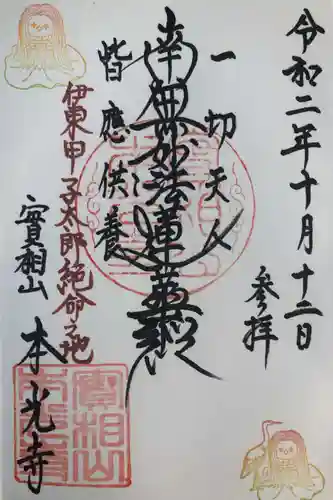 令和二年十月十二日
参拝
一切天人
南無妙法蓮華経
皆應供養
伊東甲子太郎絶命之地
實相山
本光寺